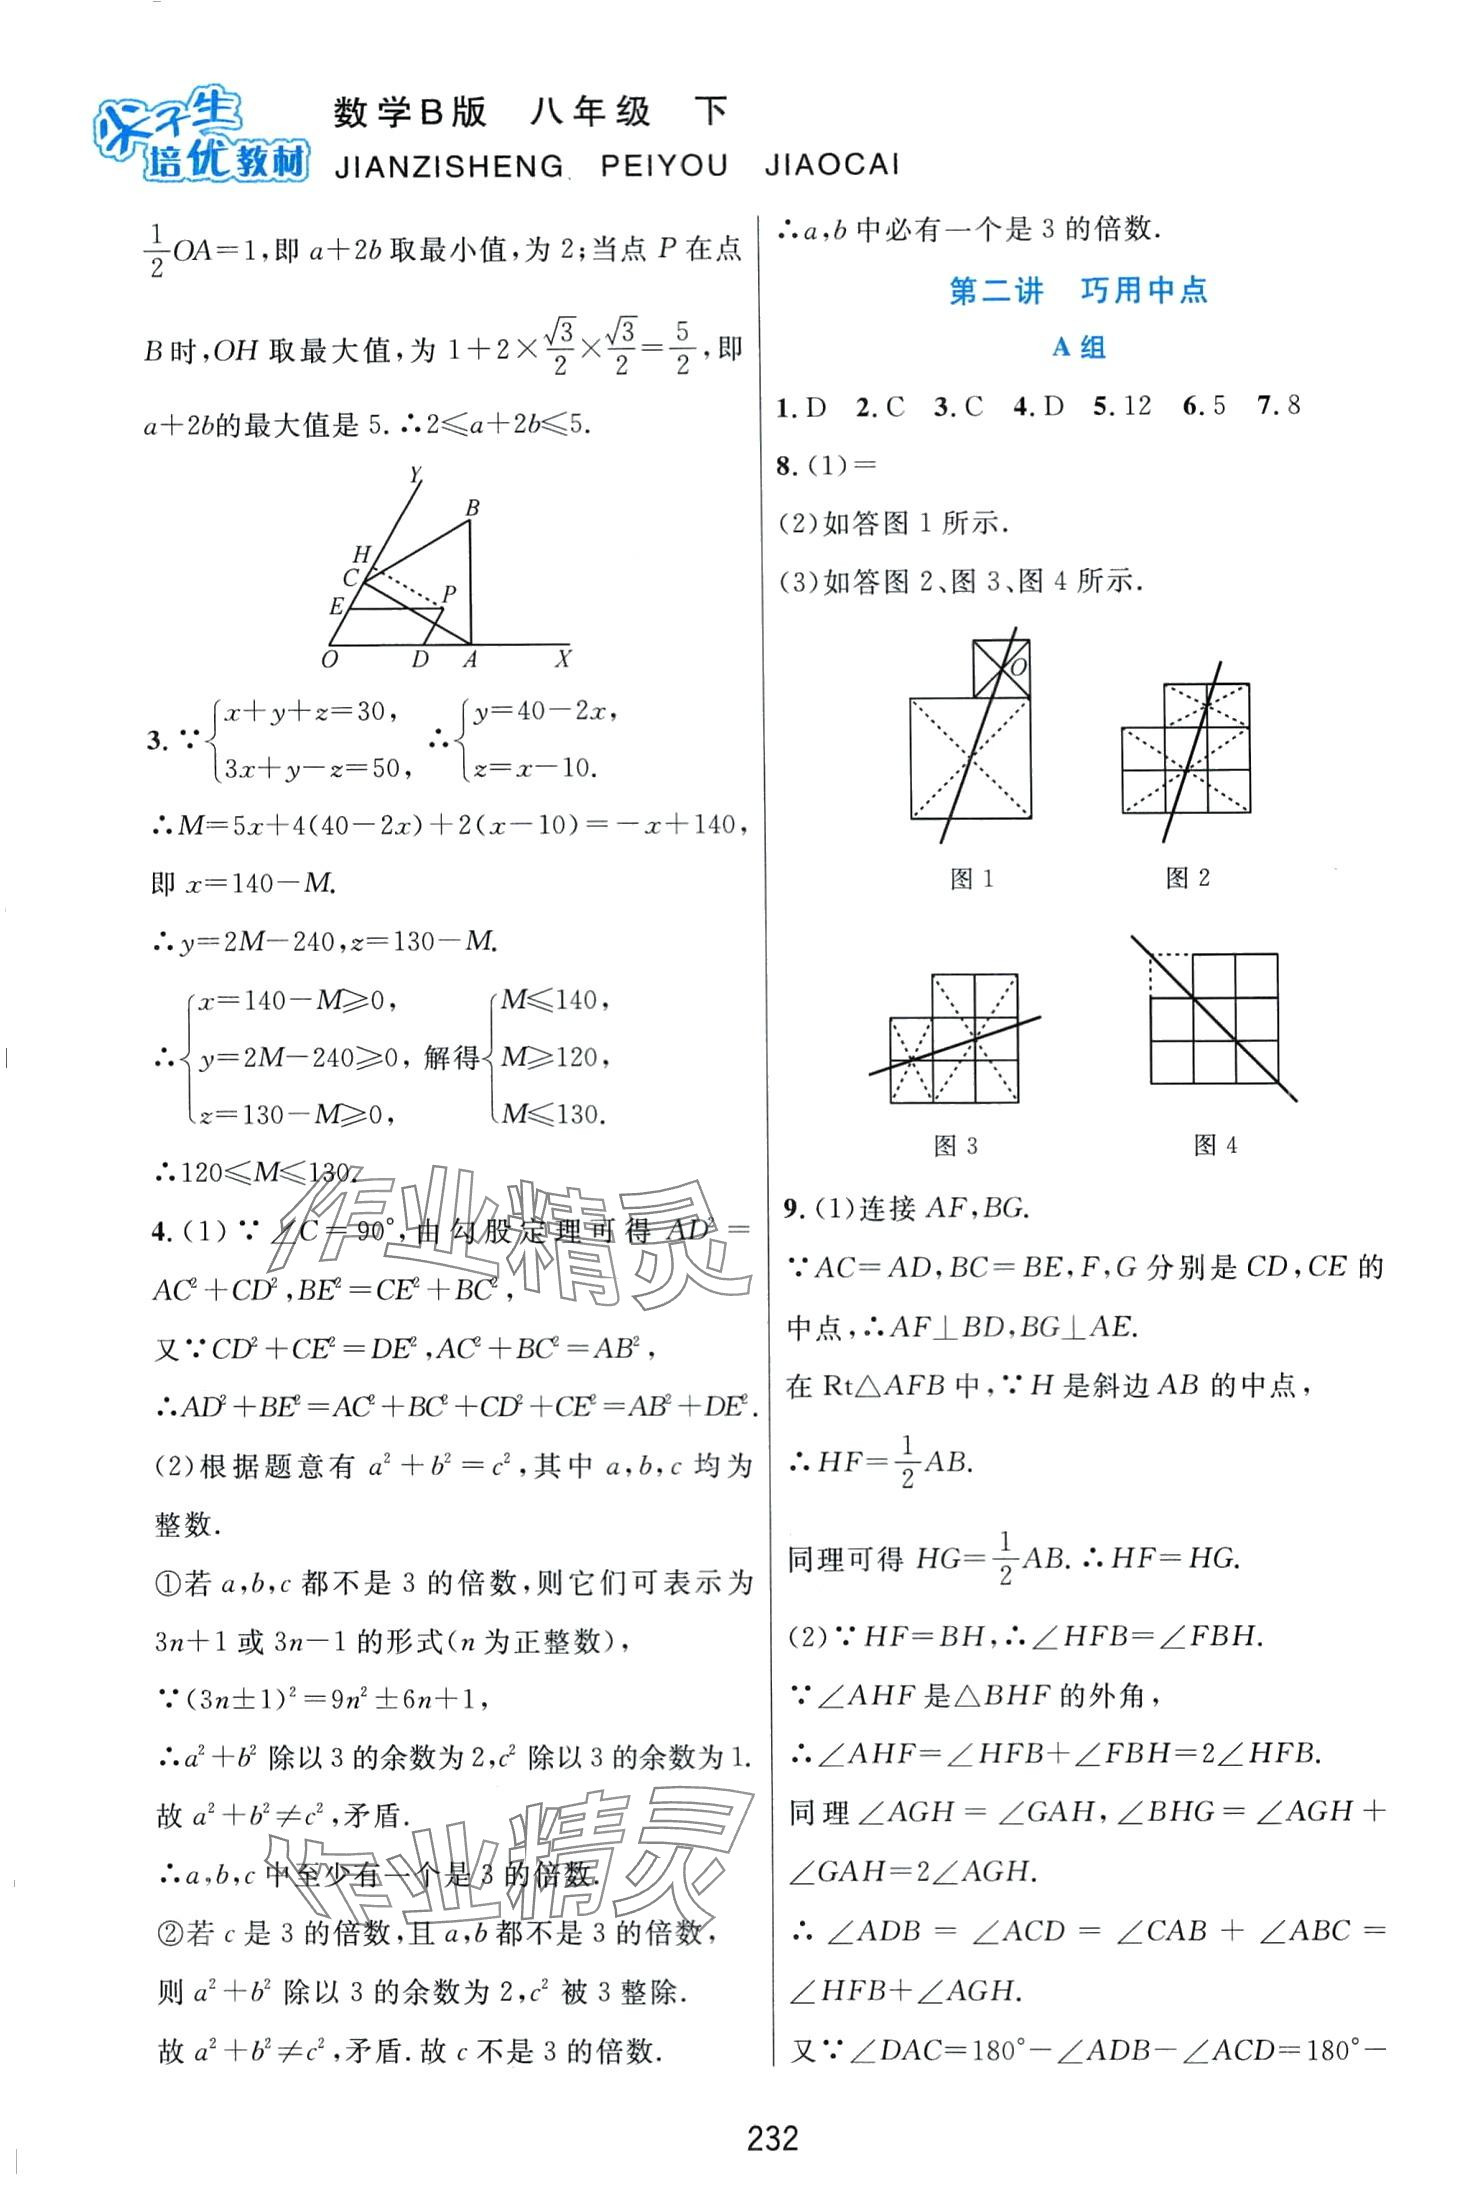 尖子生
培优教材
数学B版 八年级 下
JIANZISHENG PEIYOU JIAOCAI
$\frac{1}{2}$OA=1,即 a+2b 取最小值,为 2;当点 P 在点
B 时,OH 取最大值,为 1+2×$\frac{\sqrt{3}}{2}$×$\frac{\sqrt{3}}{2}$=$\frac{5}{2}$,即
a+2b的最大值是 5.∴2≤a+2b≤5.
Y
B
H
C
P
E
O D A X
3.∵{x+y+z=30, 3x+y-z=50, ∴{y=40-2x, z=x-10.
∴M=5x+4(40-2x)+2(x-10)=-x+140,
即 x=140-M.
∴y=2M-240,z=130-M.
∴{x=140-M≥0, y=2M-240≥0, z=130-M≥0, 解得{M≤140, M≥120, M≤130.
∴120≤M≤130.
4.(1)∵∠C=90°,由勾股定理可得 AD²=
AC²+CD²,BE²=CE²+BC²,
又∵CD²+CE²=DE²,AC²+BC²=AB²,
∴AD²+BE²=AC²+BC²+CD²+CE²=AB²+DE².
(2)根据题意有 a²+b²=c²,其中 a,b,c 均为
整数.
①若 a,b,c 都不是 3 的倍数,则它们可表示为
3n+1 或 3n-1 的形式(n 为正整数),
∵(3n±1)²=9n²±6n+1,
∴a²+b² 除以 3 的余数为 2,c² 除以 3 的余数为 1.
故 a²+b²≠c²,矛盾.
∴a,b,c 中至少有一个是 3 的倍数.
②若 c 是 3 的倍数,且 a,b 都不是 3 的倍数,
则 a²+b² 除以 3 的余数为 2,c² 被 3 整除.
故 a²+b²≠c²,矛盾.故 c 不是 3 的倍数.
∴a,b 中必有一个是 3 的倍数.
第二讲 巧用中点
A 组
1.D 2.C 3.C 4.D 5.12 6.5 7.8
8.(1)=
(2)如答图 1 所示.
(3)如答图 2、图 3、图 4 所示.
O
图 1 图 2
图 3 图 4
9.(1)连接 AF,BG.
∵AC=AD,BC=BE,F,G 分别是 CD,CE 的
中点,∴AF⊥BD,BG⊥AE.
在 Rt△AFB 中,∵H 是斜边 AB 的中点,
∴HF=$\frac{1}{2}$AB.
同理可得 HG=$\frac{1}{2}$AB.∴HF=HG.
(2)∵HF=BH,∴∠HFB=∠FBH.
∵∠AHF 是△BHF 的外角,
∴∠AHF=∠HFB+∠FBH=2∠HFB.
同理 ∠AGH=∠GAH,∠BHG=∠AGH+
∠GAH=2∠AGH.
∴∠ADB=∠ACD=∠CAB+∠ABC=
∠HFB+∠AGH.
又∵∠DAC=180°-∠ADB-∠ACD=180°-
232
作业精灵
作业精灵